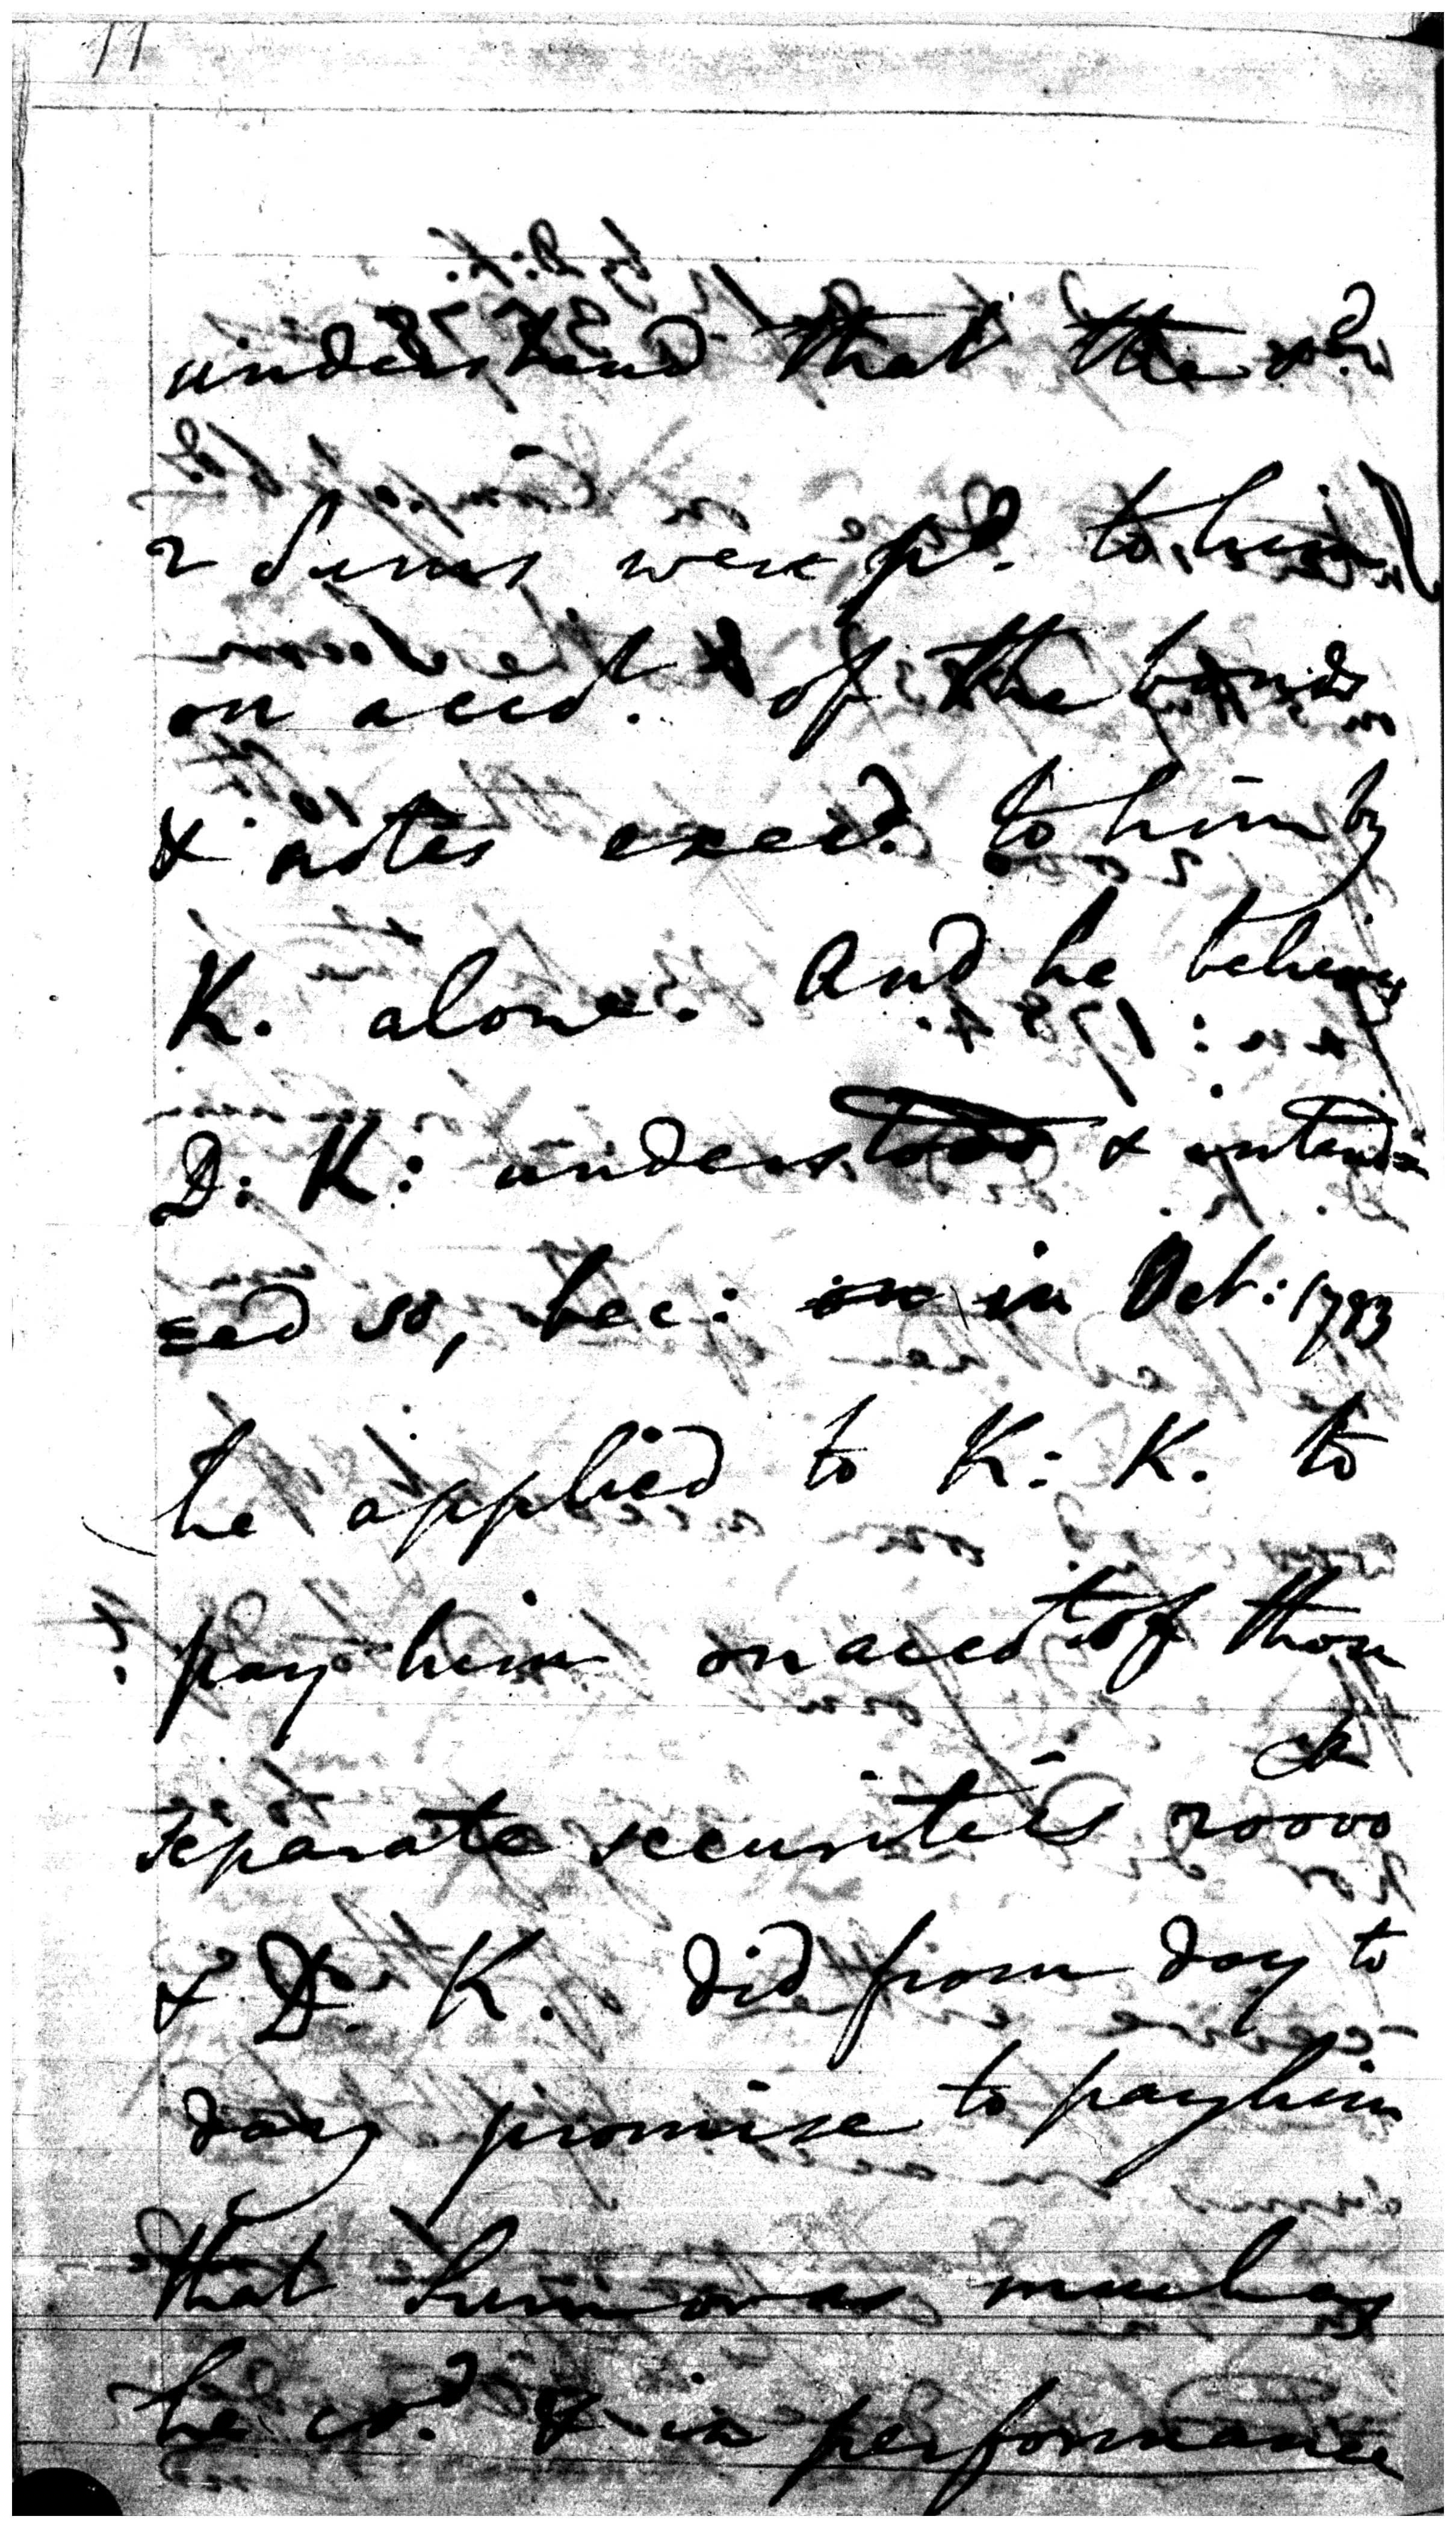 11
understand that the sd.
2 Sums were pd. to him
on accot. of the bonds
& notes execd. to him by
K. alone. And he believes
D: K: understood & intend=
=ed so, bec: on in Oct: 1783
he applied to K: K. to
pay him on accot of those
separate securities
20000
& D. K. did from day to
day promise to pay him
that Sum or as much as
he cd. & in performance